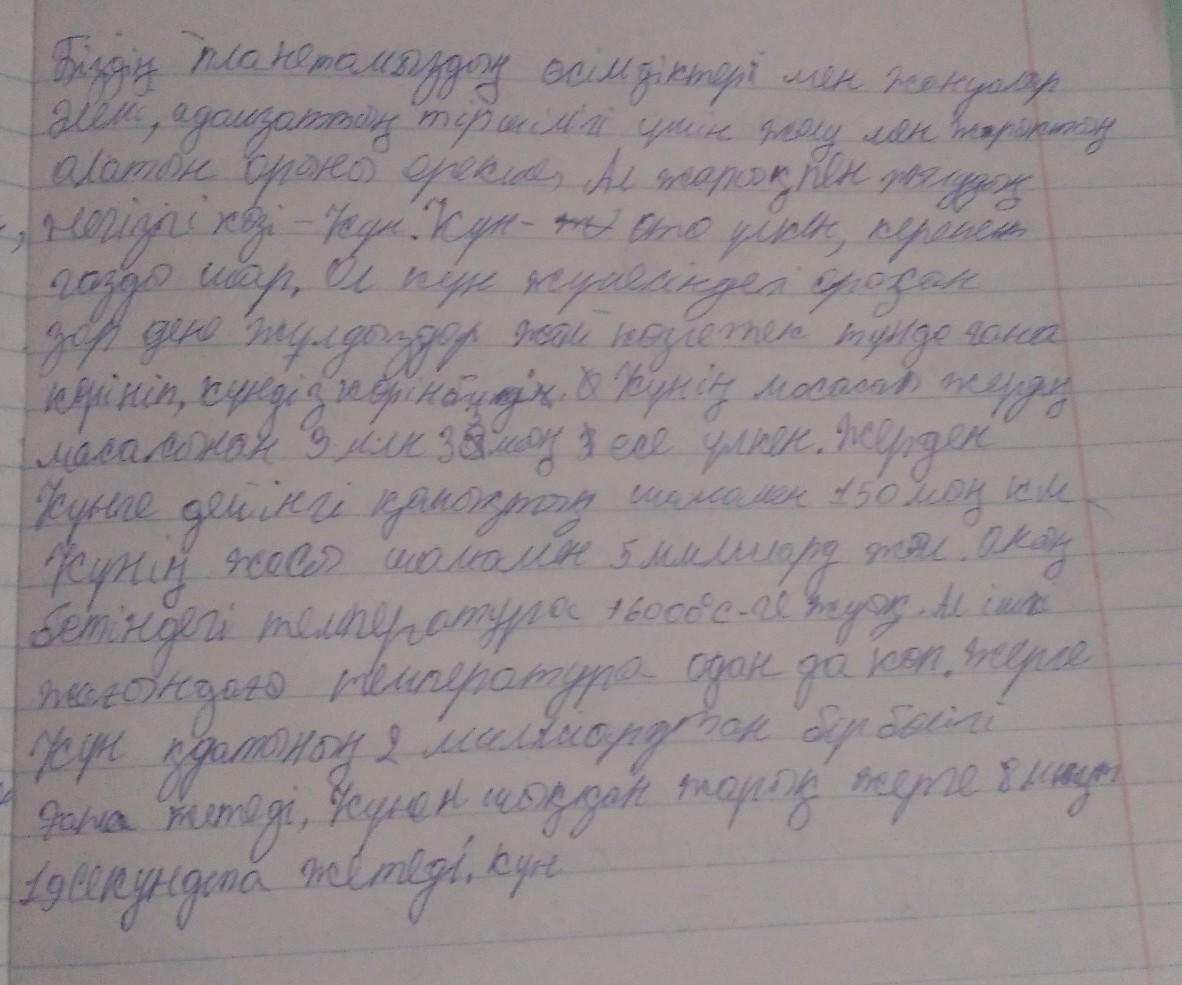 Біздің планетамыздың өсімдіктері мен жануарлар
әлемі, адамзаттың тіршілігі үшін жылу мен жарықтың
алатын орны ерекше, Ал жарық пен жылудың
негізгі көзі - Күн. Күн - өте үлкен, керемет
газды шар. Ол күн жүйесіндегі орасан
зор дене жұлдыздар жай көзге тек түнде ғана
көрініп, күндіз көрінбейді. Күнің массасы жердің
массасынан 3 млн 33 мың есе үлкен. Жерден
Күнге дейінгі қашықтық шамамен 150 мың км
Күнің жасы шамамен 5 миллиард жыл. Оның
бетіндегі температура +6000°c-ге жуық. Ал ішкі
жағындағы температура одан да көп. Жерге
Күн қуатының 2 миллиардтан бір бөлігі
ғана жетеді, Күнен шыққан жарық жерге 8 минут
19 секундта жетеді. күн